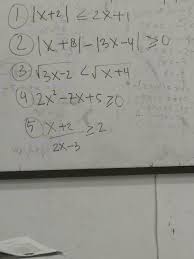 ① |x+2| ≤ 2x+1
② |x+8| - |3x-4| ≥ 0
③ √3x-2 < √x+4
④ 2x² - 7x + 5 ≥ 0
⑤ x+2/2x-3 ≥ 2